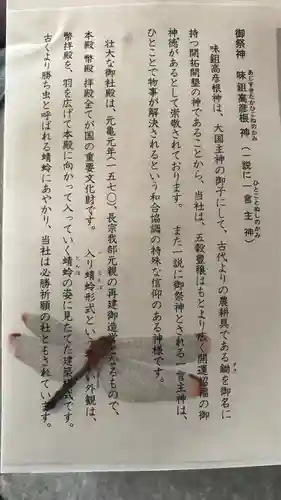 御祭神　味鉏高彦根神（一説に一言主神）
あぢすきたかひこねのかみ
ひとことぬしのかみ
味鉏高彦根神は、大国主神の御子にして、古代よりの農耕具である鋤を御名に
すき
持つ開拓開墾の神であることから、当社は、五穀豊穣はもとより広く開運招福の御
神徳があるとして崇敬されております。　また一説に御祭神とされる一言主神は、
ひとことで物事が解決されるという和合協調の特殊な信仰のある神様です。
壮大な御社殿は、元亀元年（一五七〇）、長宗我部元親の再建御造営
るもので、
本殿 幣殿 拝殿全てが国の重要文化財です。　入り蜻蛉形式とい
い外観は、
とんぼ
幣拝殿を、羽を広げて本殿に向かって入っていく蜻蛉の姿に見たてた建築様式です。
とんぼ
古くより勝ち虫と呼ばれる蜻蛉にあやかり、当社は必勝祈願の社ともされています。